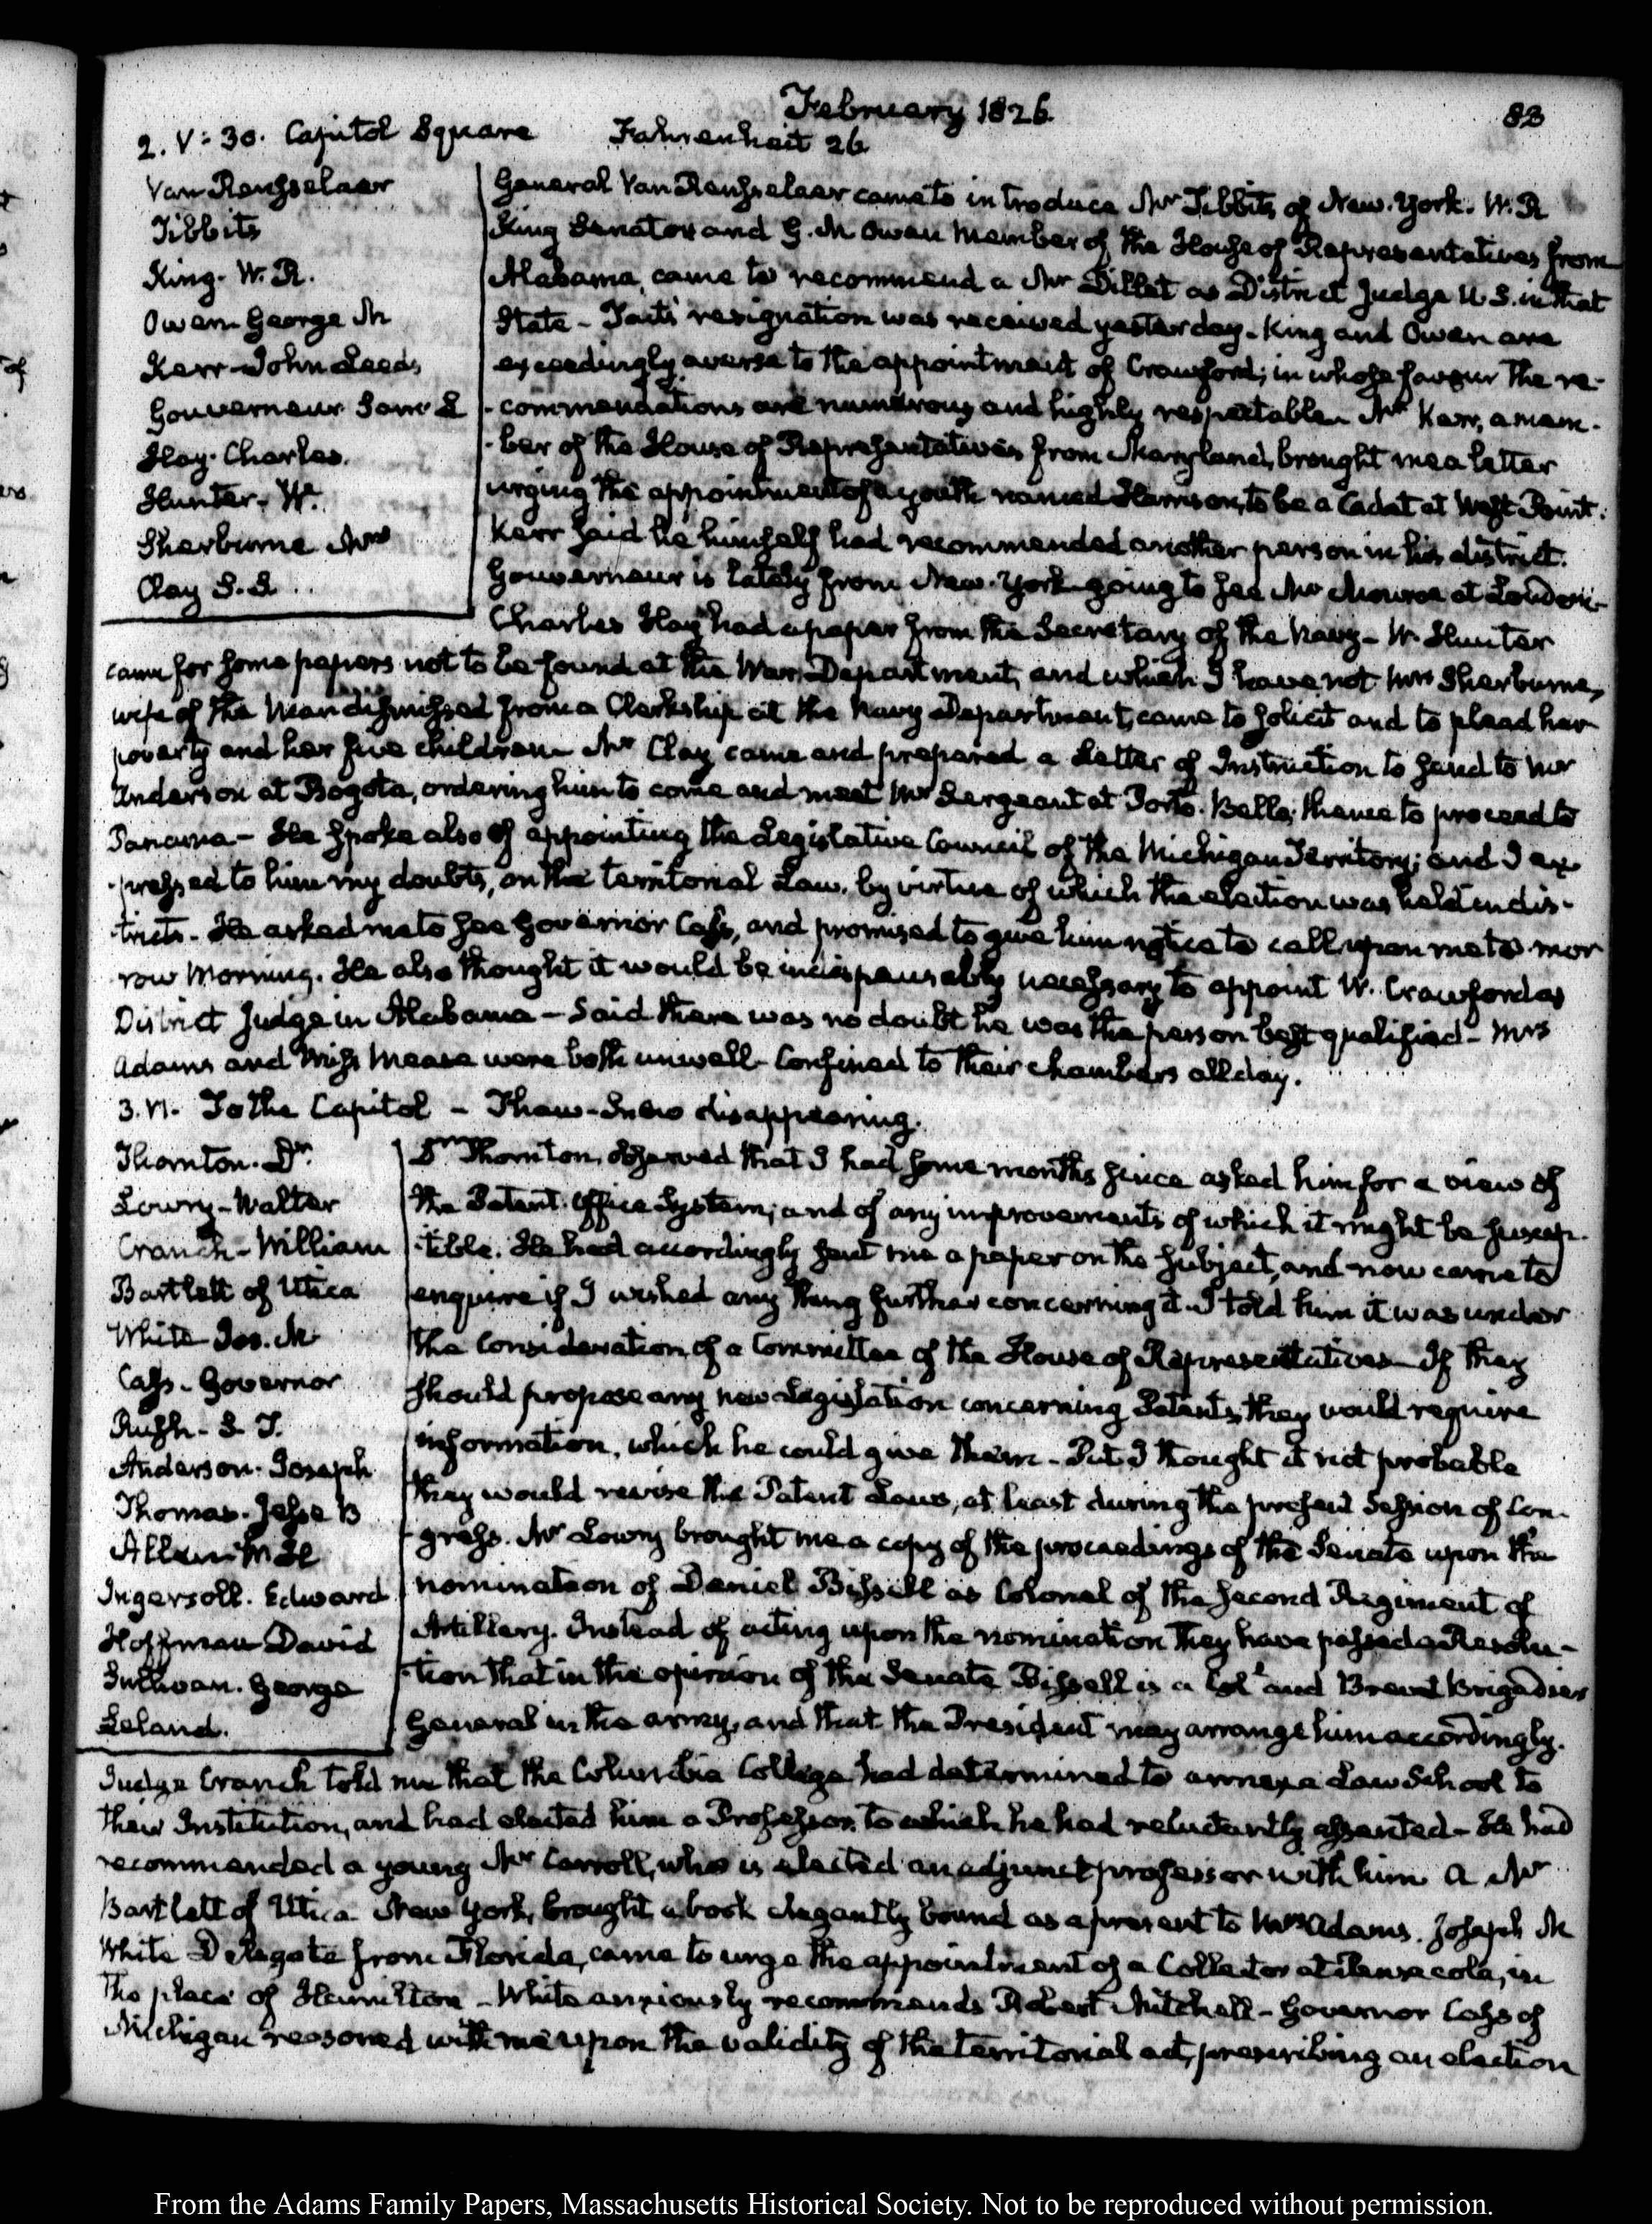 February 1826.
83
2. V:30. Capitol Square Fahrenheit 26
Van Rensselaer
Tibbits
King. W. R.
Owen George M
Kerr John Leeds
Gouverneur Saml L
Hay. Charles.
Hunter. W.
Sherburne Mrs
Clay S.S.
General Van Rensselaer came to introduce Mr Tibbits of New-York. W. R
King Senator and G. M Owen member of the House of Representatives from
Alabama, came to recommend a Mr Dillet as District Judge U.S. in that
State – Tait's resignation was received yesterday – King and Owen are
exceedingly averse to the appointment of Crawford; in whose favour the re-
-commendations are numerous and highly respectable. Mr Kerr, a mem-
-ber of the House of Representatives from Maryland, brought me a letter
urging the appointment of a youth named Harrison, to be a Cadet at West Point.
Kerr said he himself had recommended another person in his district.
Gouverneur is lately from New-York going to see Mr Monroe at Loudon –
Charles Hay had a paper from the Secretary of the Navy – W. Hunter
came for some papers not to be found at the War Department, and which I have not. Mrs Sherburne,
wife of the man dismissed from a Clerkship at the Navy Department, came to solicit and to plead her
poverty and her five children. Mr Clay came and prepared a Letter of Instruction to send to Mr
Anderson at Bogota, ordering him to come and meet Mr Sergeant at Porto-Bello; thence to proceed to
Panama – He spoke also of appointing the Legislative Council of the Michigan Territory; and I ex
-pressed to him my doubts, on the territorial Law, by virtue of which the election was held in dis-
-tricts. He asked me to see Governor Cass, and promised to give him notice to call upon me to mor
row morning. He also thought it would be indispensably necessary to appoint W. Crawford as
District Judge in Alabama – said there was no doubt he was the person best qualified – Mrs
Adams and Miss Mease were both unwell – Confined to their chambers all day.
3. VI. To the Capitol – Thaw – Snow disappearing.
Thornton. Dr.
Lowry – Walter
Cranch – William
Bartlett of Utica
White Jos. M
Cass. Governor
Rush – S. T.
Anderson. Joseph
Thomas. Jesse B
Allen
Ingersoll. Edward
Hoffman David
Sullivan. George
Leland.
Dr Thornton, observed that I had some months since asked him for a view of
the Patent Office System; and of any improvements of which it might be suscep-
-tible. He had accordingly sent me a paper on the subject, and now came to
enquire if I wished any thing further concerning it. I told him it was under
the consideration of a Committee of the House of Representatives – If they
should propose any new Legislation concerning Patents, they would require
information, which he could give them – But I thought it not probable
they would revise the Patent Laws, at least during the present Session of Con-
-gress. Mr Lowry brought me a copy of the proceedings of the Senate upon the
nomination of Daniel Bissell as Colonel of the second Regiment of
Artillery. Instead of acting upon the nomination they have passed a Resolu-
-tion that in the opinion of the Senate Bissell is a Col. and Brevet Brigadier
General in the army, and that the President may arrange him accordingly.
Judge Cranch told me that the Columbia College had determined to annex a Law School to
their Institution, and had elected him a Professor, to which he had reluctantly assented – He had
recommended a young Mr Carroll, who is elected an adjunct professor with him. A Mr
Bartlett of Utica New York, brought a book elegantly bound as a present to Mrs Adams. Joseph M
White Delegate from Florida, came to urge the appointment of a Collector at Pensacola, in
the place of Hamilton – White anxiously recommends Robert Mitchell – Governor Cass of
Michigan reasoned with me upon the validity of the territorial act, prescribing an election
From the Adams Family Papers, Massachusetts Historical Society. Not to be reproduced without permission.